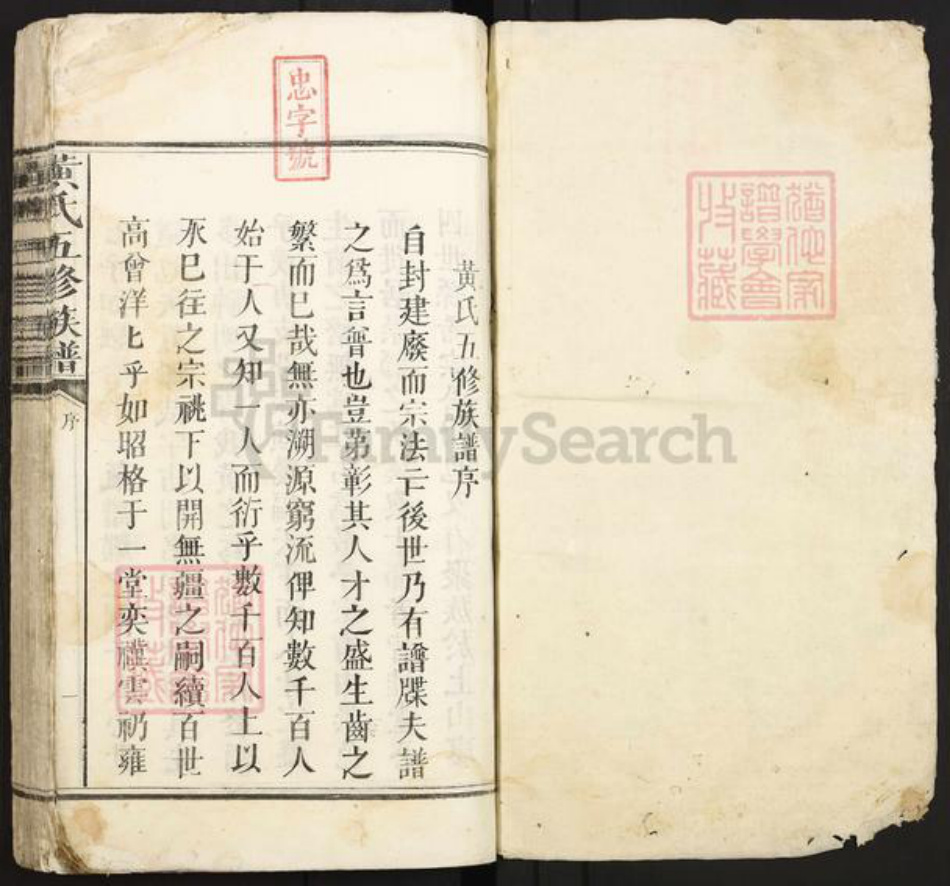 猶他家
譜學會
收藏
忠字號
黃氏五修族譜序
自封建廢而宗法亡後世乃有譜牒夫譜
之爲言普也豈第彰其人才之盛生齒之
繁而已哉無亦溯源窮流俾知數千百人
始于人又知一人而衍乎數千百人上以
承已往之宗祧下以開無疆之嗣續百世
高曾洋匕乎如昭格于一堂奕禩雲礽雍
黃氏五修族譜
序
一
猶他家
譜學會
收藏
FamilySearch